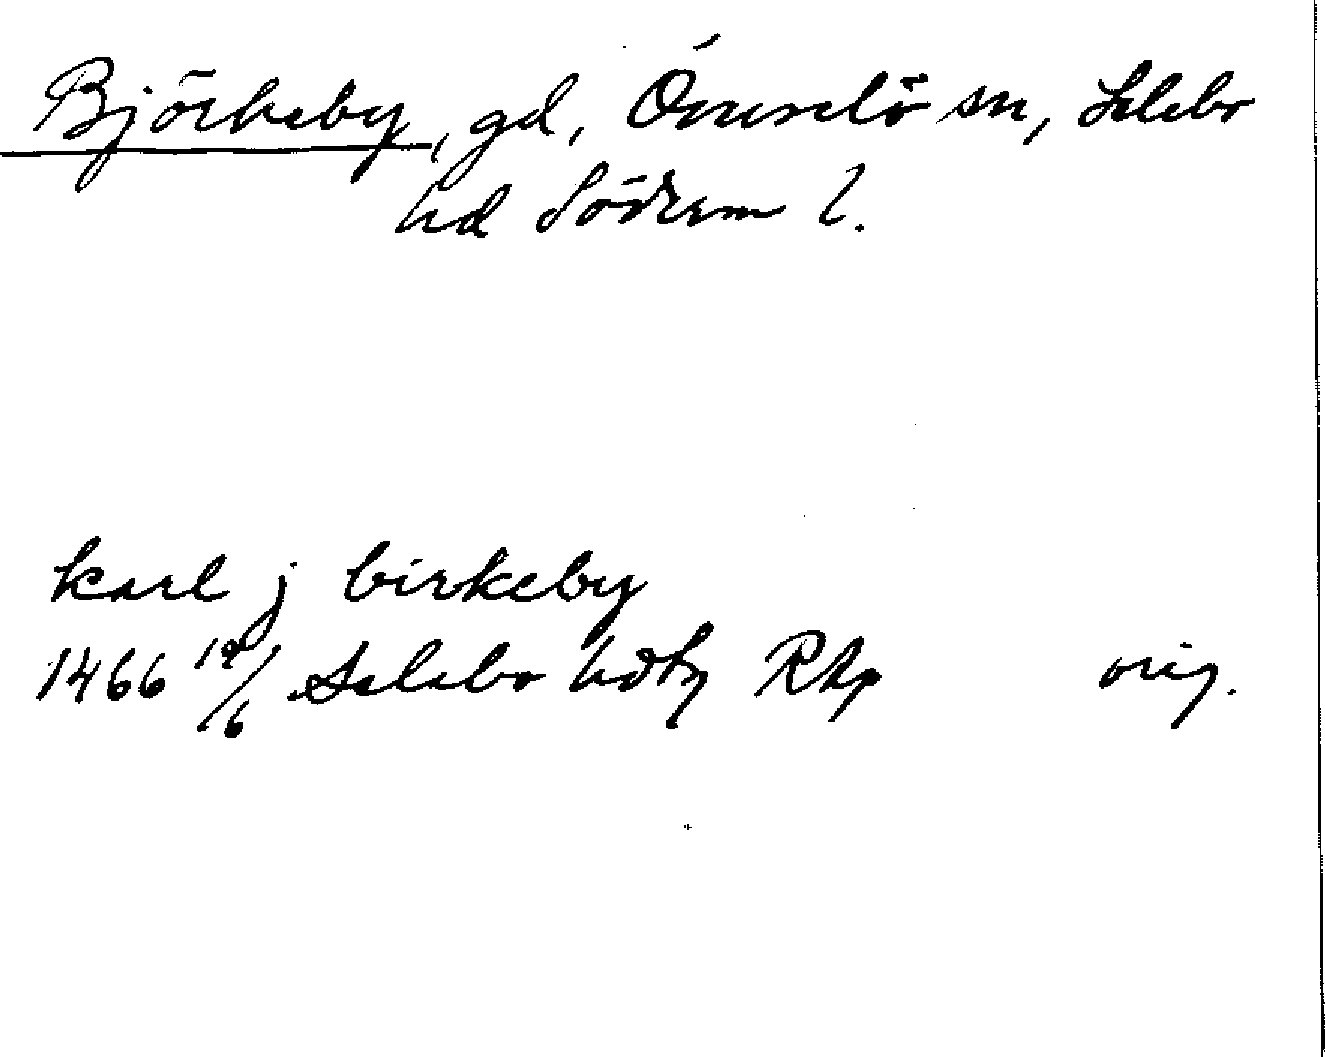 Björkeby, gd, Överselö sn, Selebo
hd Söderm l.
karl j birkeby
1466 19/6 Selebo hdtg RAp orig.